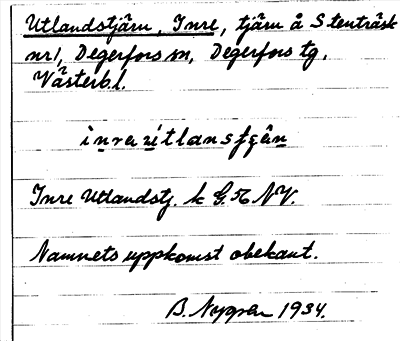 Utlandstjärn, Inre, tjärn å Stenträsk
nr1, Degerfors sn, Degerfors tg,
Västerb.l.
Inre Utlandstj. k G.56 NV.
Namnets uppkomst obekant.
B. Nygren 1934.